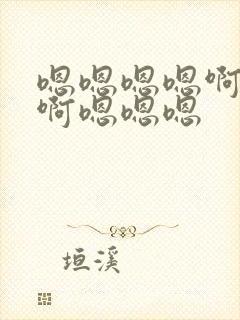 嗯嗯嗯嗯啊
啊嗯嗯嗯
垣溪